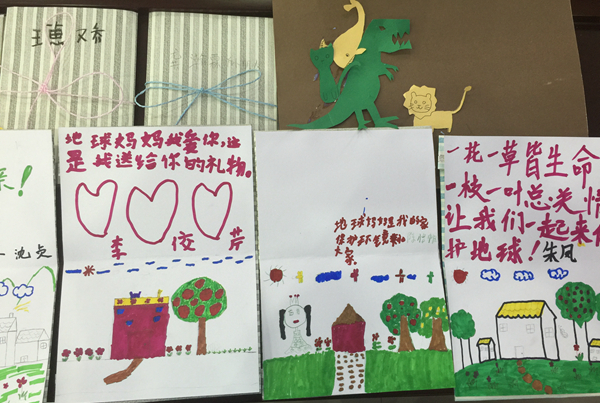 王蕙
亲!
沈贞
地球妈妈我爱你,这
是我送给你的礼物。
李 佼 芹
地球妈妈是我的家
大家
一花一草皆生命
一枝一叶总关情
让我们一起来保
护地球!朱凤